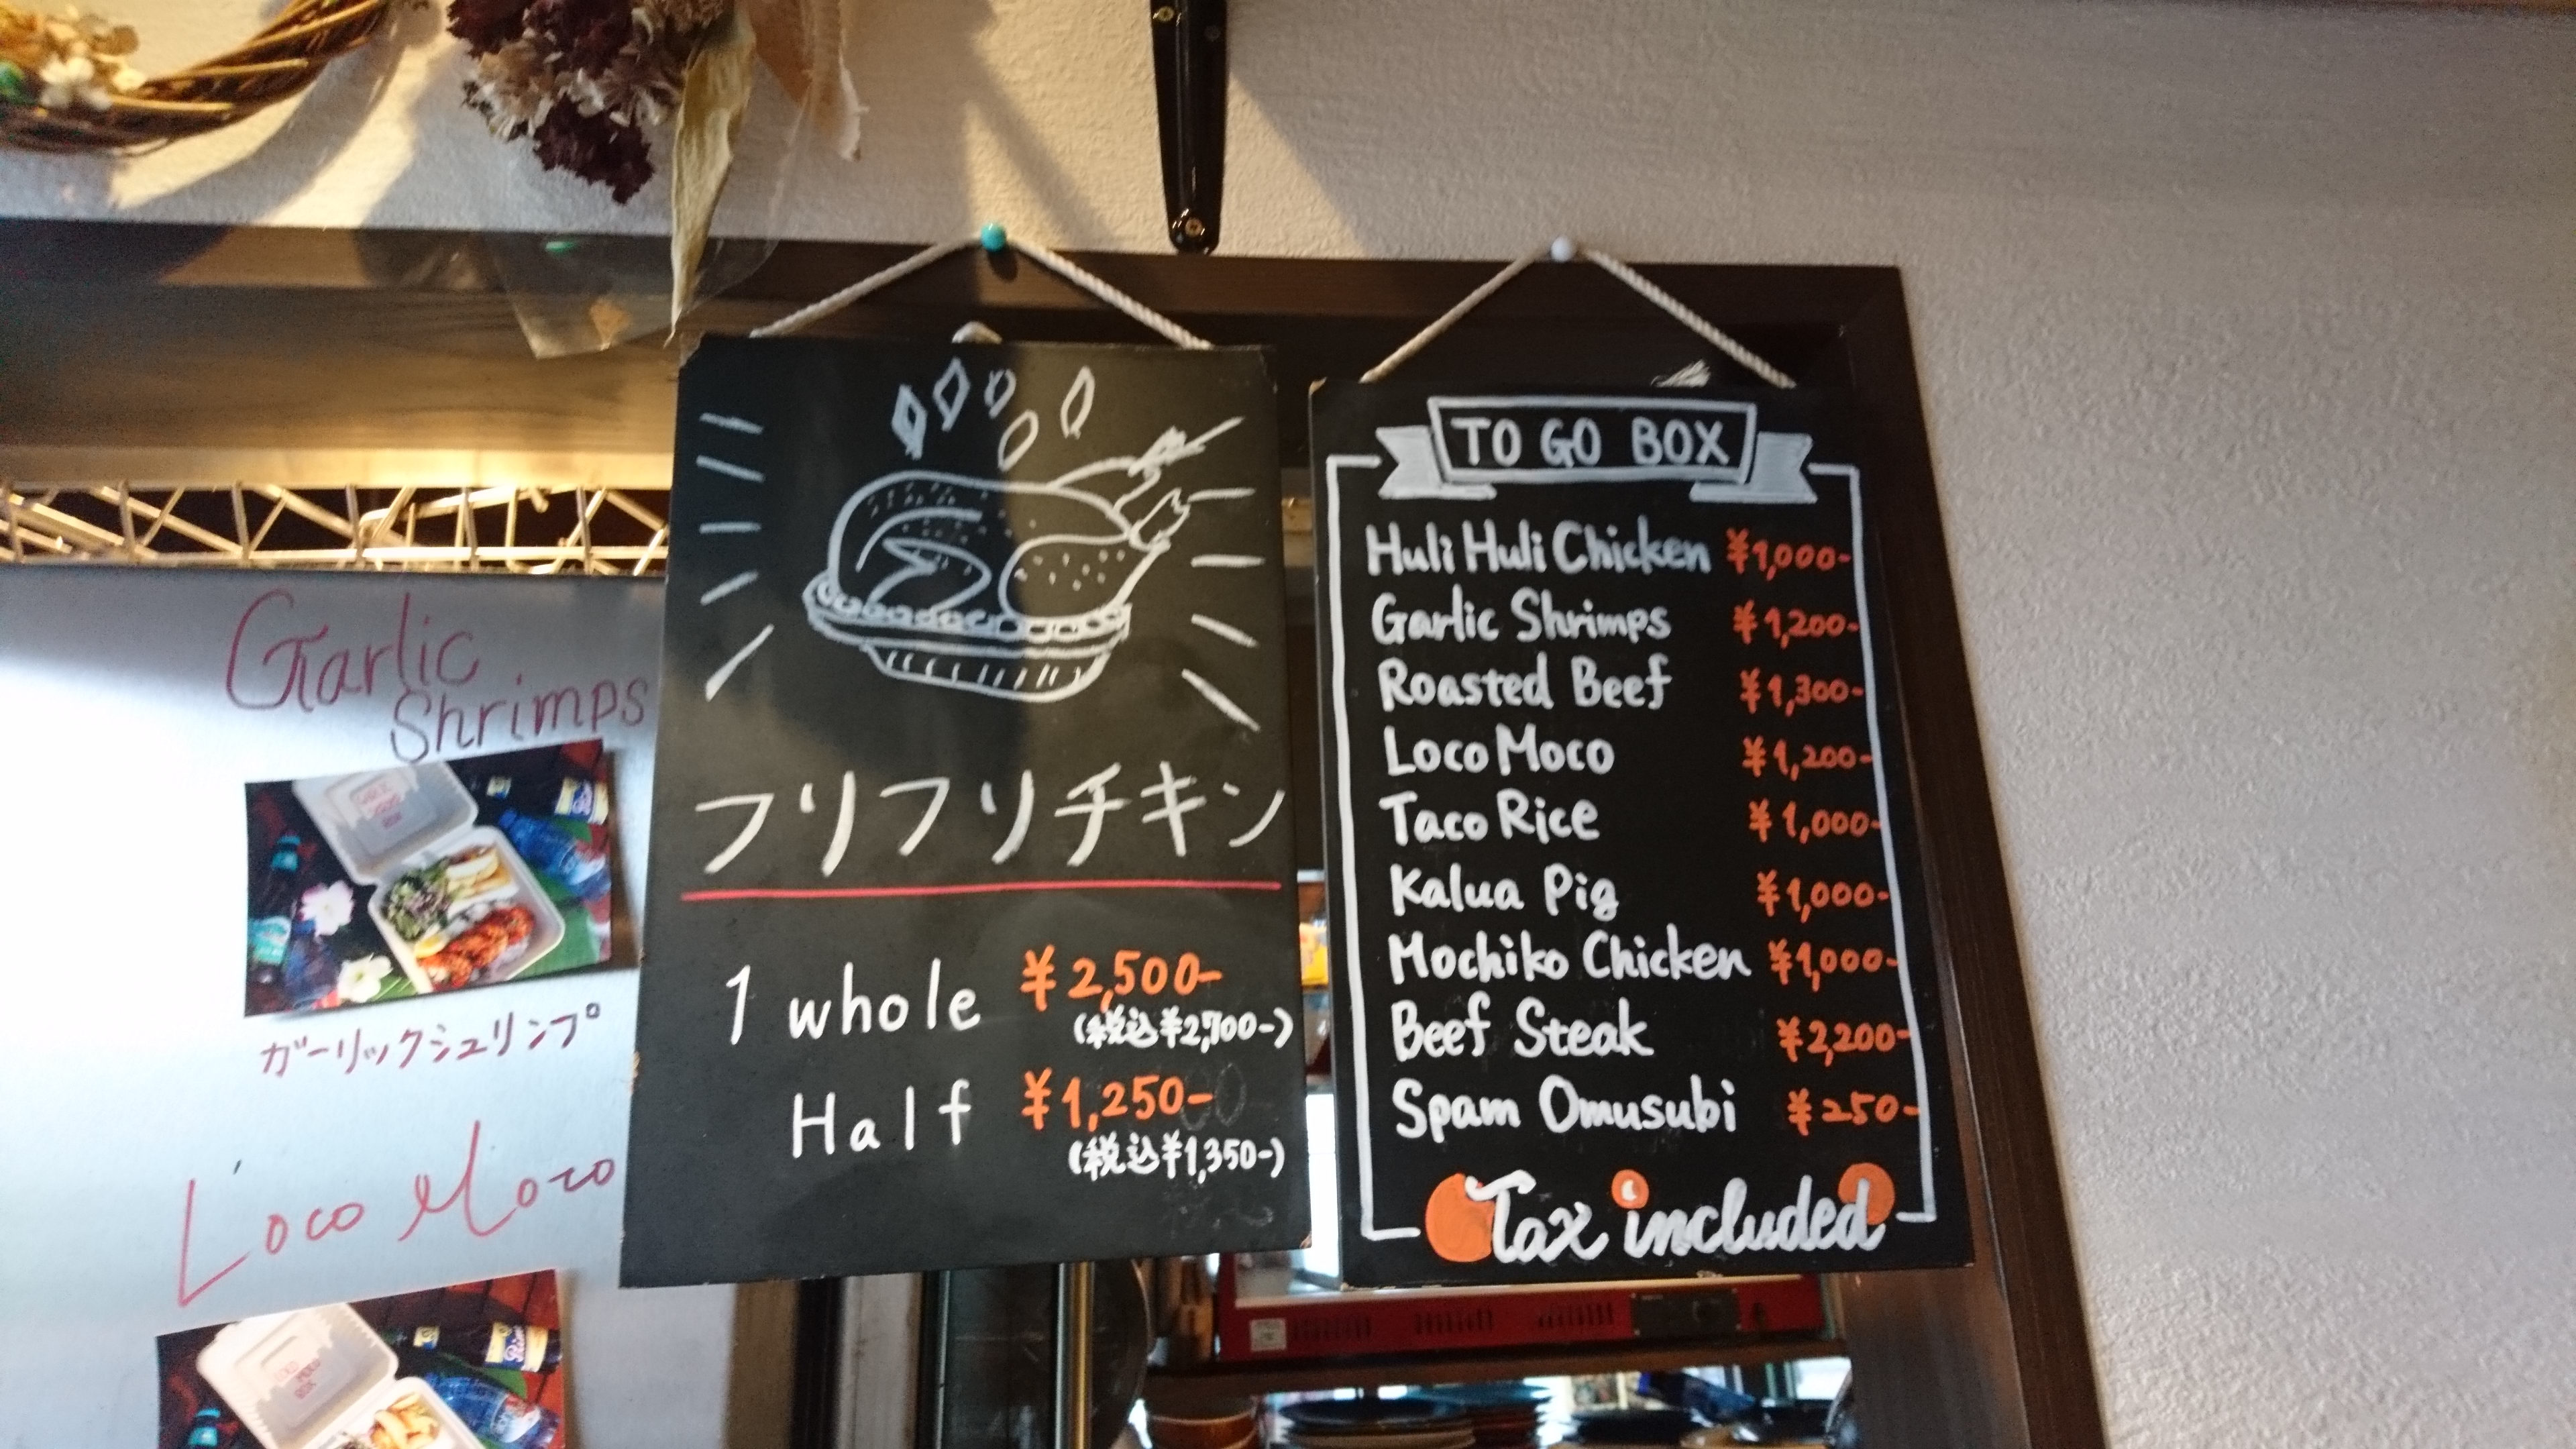 Garlic
Shrimps
ガーリックシュリンプ
Loco Moco
フリフリチキン
1 whole ¥2,500-
(税込¥2,700-)
Half ¥1,250-
(税込¥1,350-)
TO GO BOX
Huli Huli Chicken ¥1,000-
Garlic Shrimps ¥1,200-
Roasted Beef ¥1,300-
Loco Moco ¥1,200-
Taco Rice ¥1,000-
Kalua Pig ¥1,000-
Mochiko Chicken ¥1,000-
Beef Steak ¥2,200-
Spam Omusubi ¥250-
Tax included